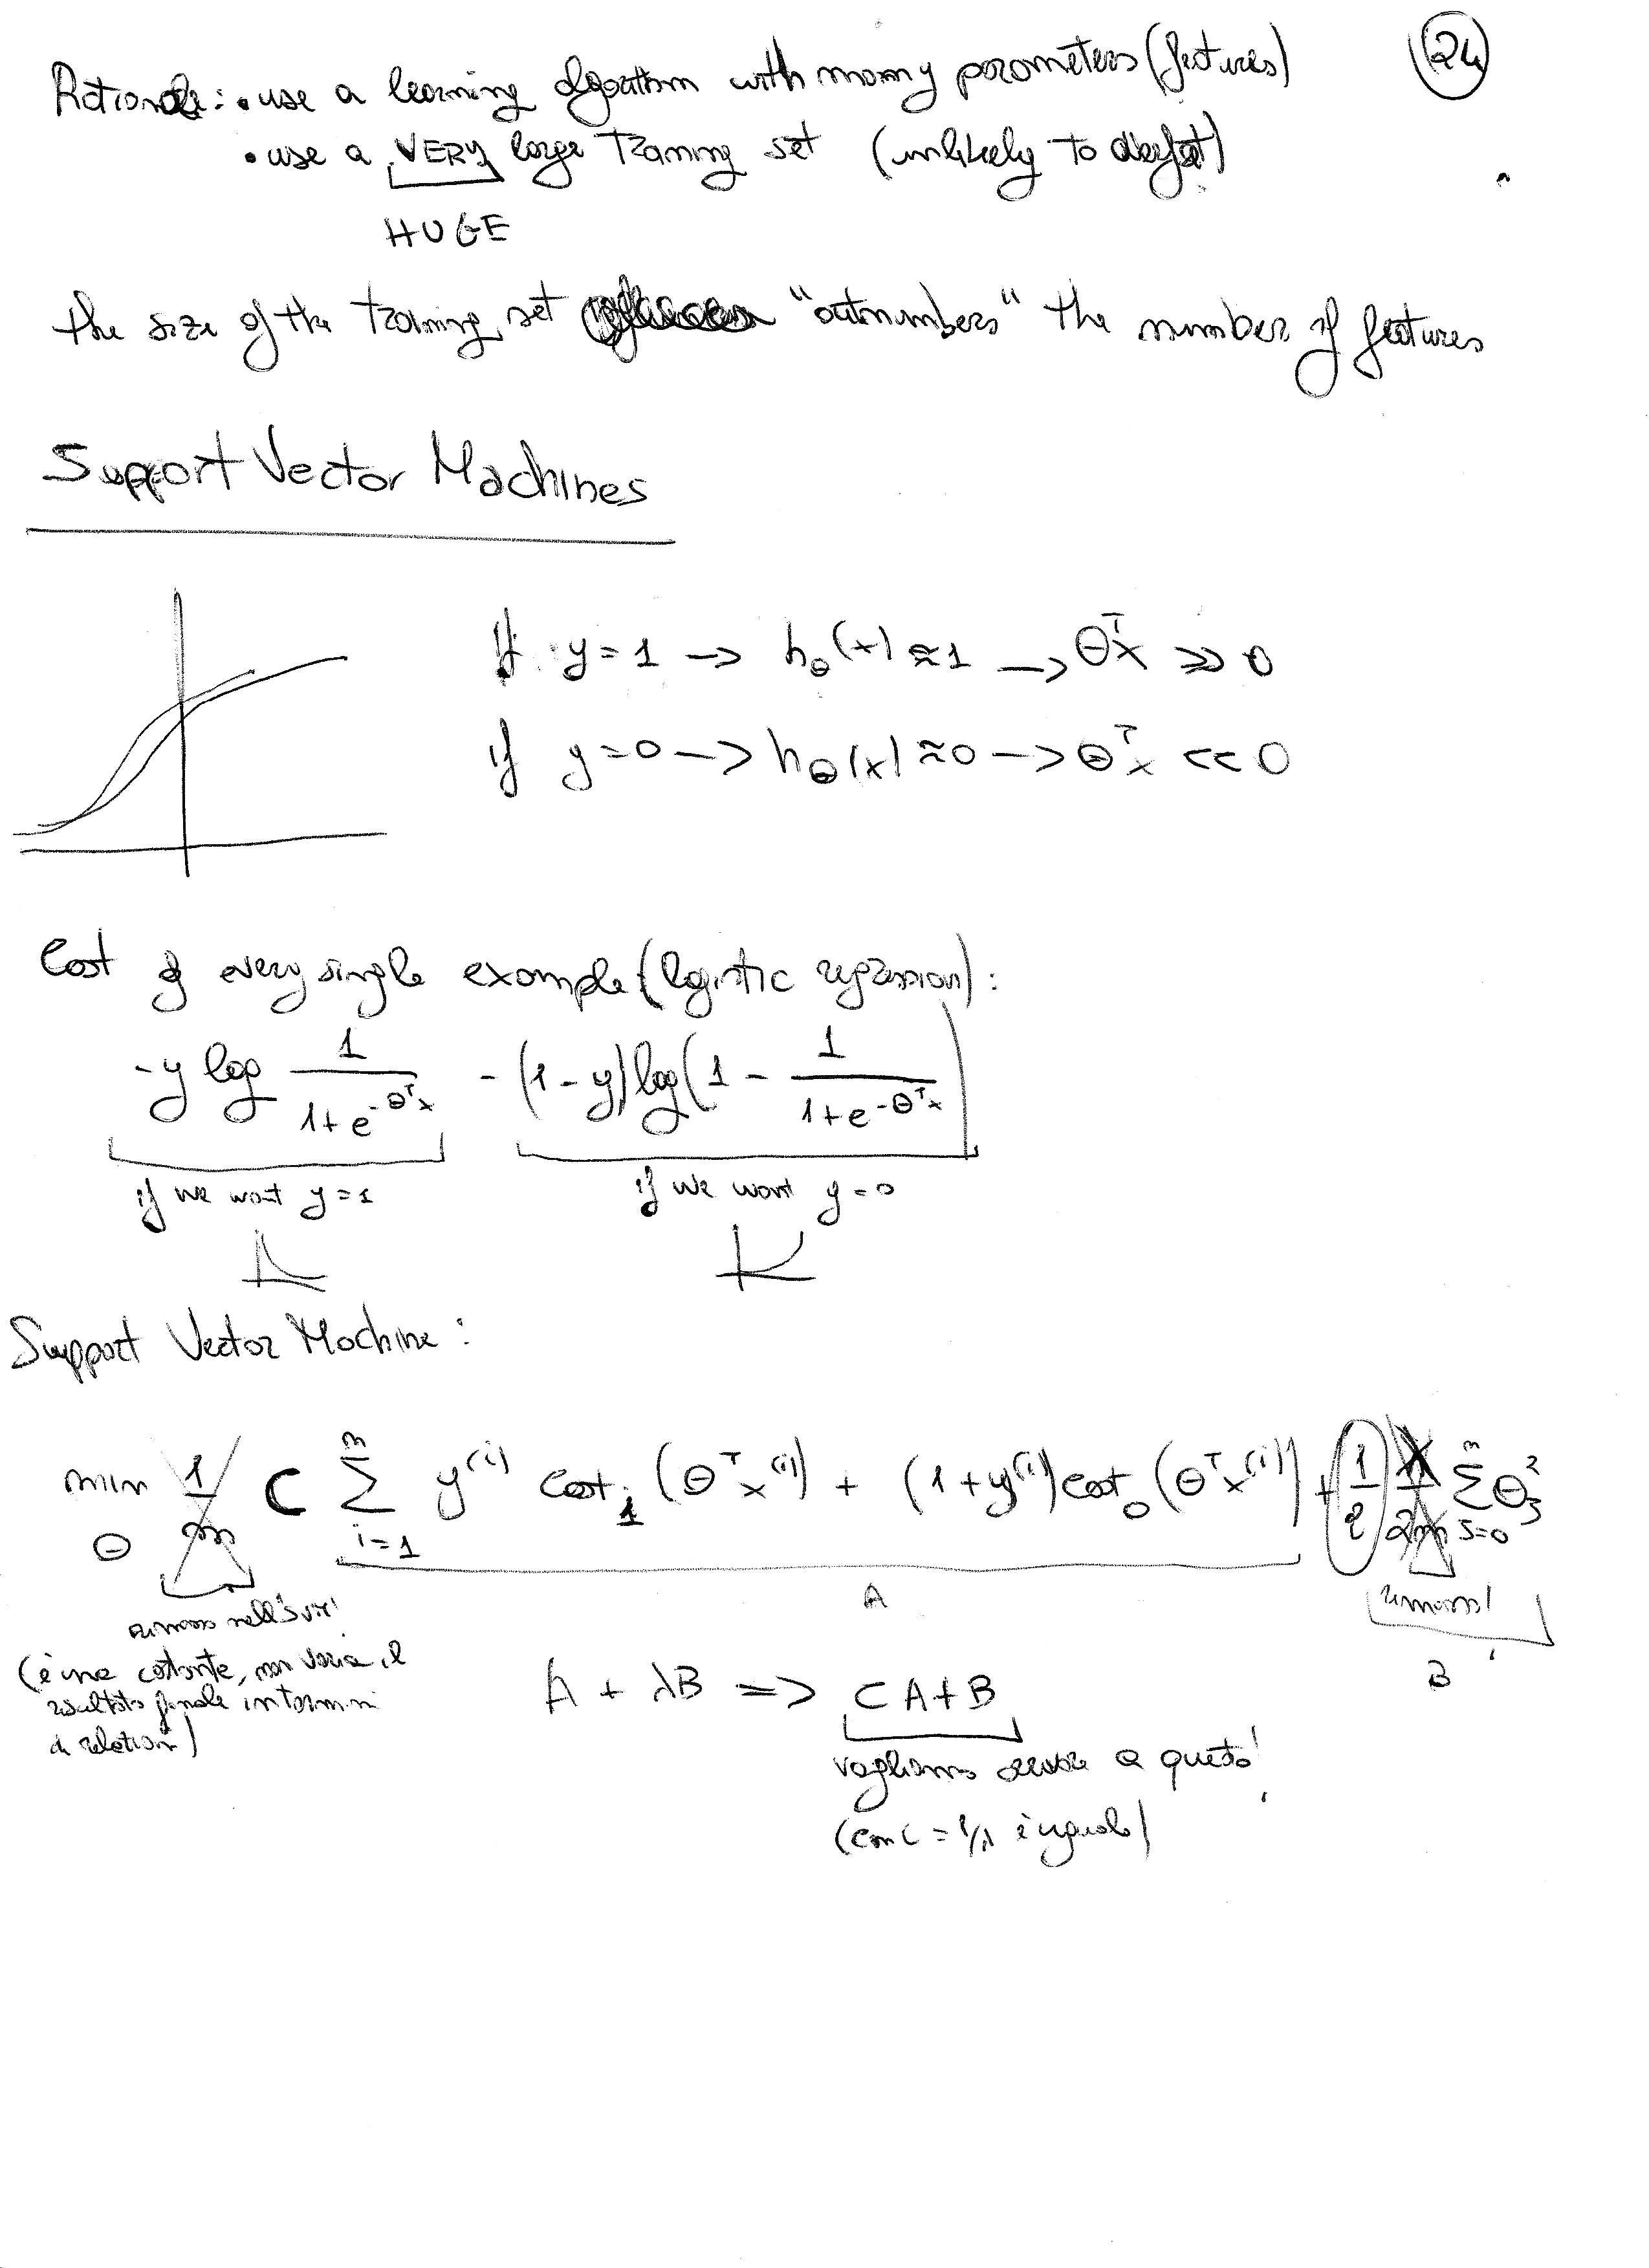 24
Rationale: • use a learning algorithm with many parameters (features)
• use a VERY large training set (unlikely to overfit)
HUGE
the size of the training set "outnumbers" the number of features
Support Vector Machines
If y = 1 -> hθ(x) ≈ 1 -> θᵀx >> 0
if y = 0 -> hθ(x) ≈ 0 -> θᵀx << 0
Cost of every single example (logistic regression):
- y log 1 / (1 + e^(-θᵀx)) - (1 - y) log (1 - 1 / (1 + e^(-θᵀx)))
if we want y = 1 if we want y = 0
Support Vector Machine:
min θ 1/m C Σ_{i=1}^{m} y⁽ⁱ⁾ cost₁ (θᵀx⁽ⁱ⁾) + (1 + y⁽ⁱ⁾) cost₀ (θᵀx⁽ⁱ⁾) + 1/2 λ/2m Σ_{j=0}^{n} θ²_j
A
rimosso nell'SVM!
rimosso!
B
(è una costante, non varia il
risultato finale in termini
di relation)
A + λB => CA + B
vogliamo arrivare a questo!
(con C = 1/λ è uguale)